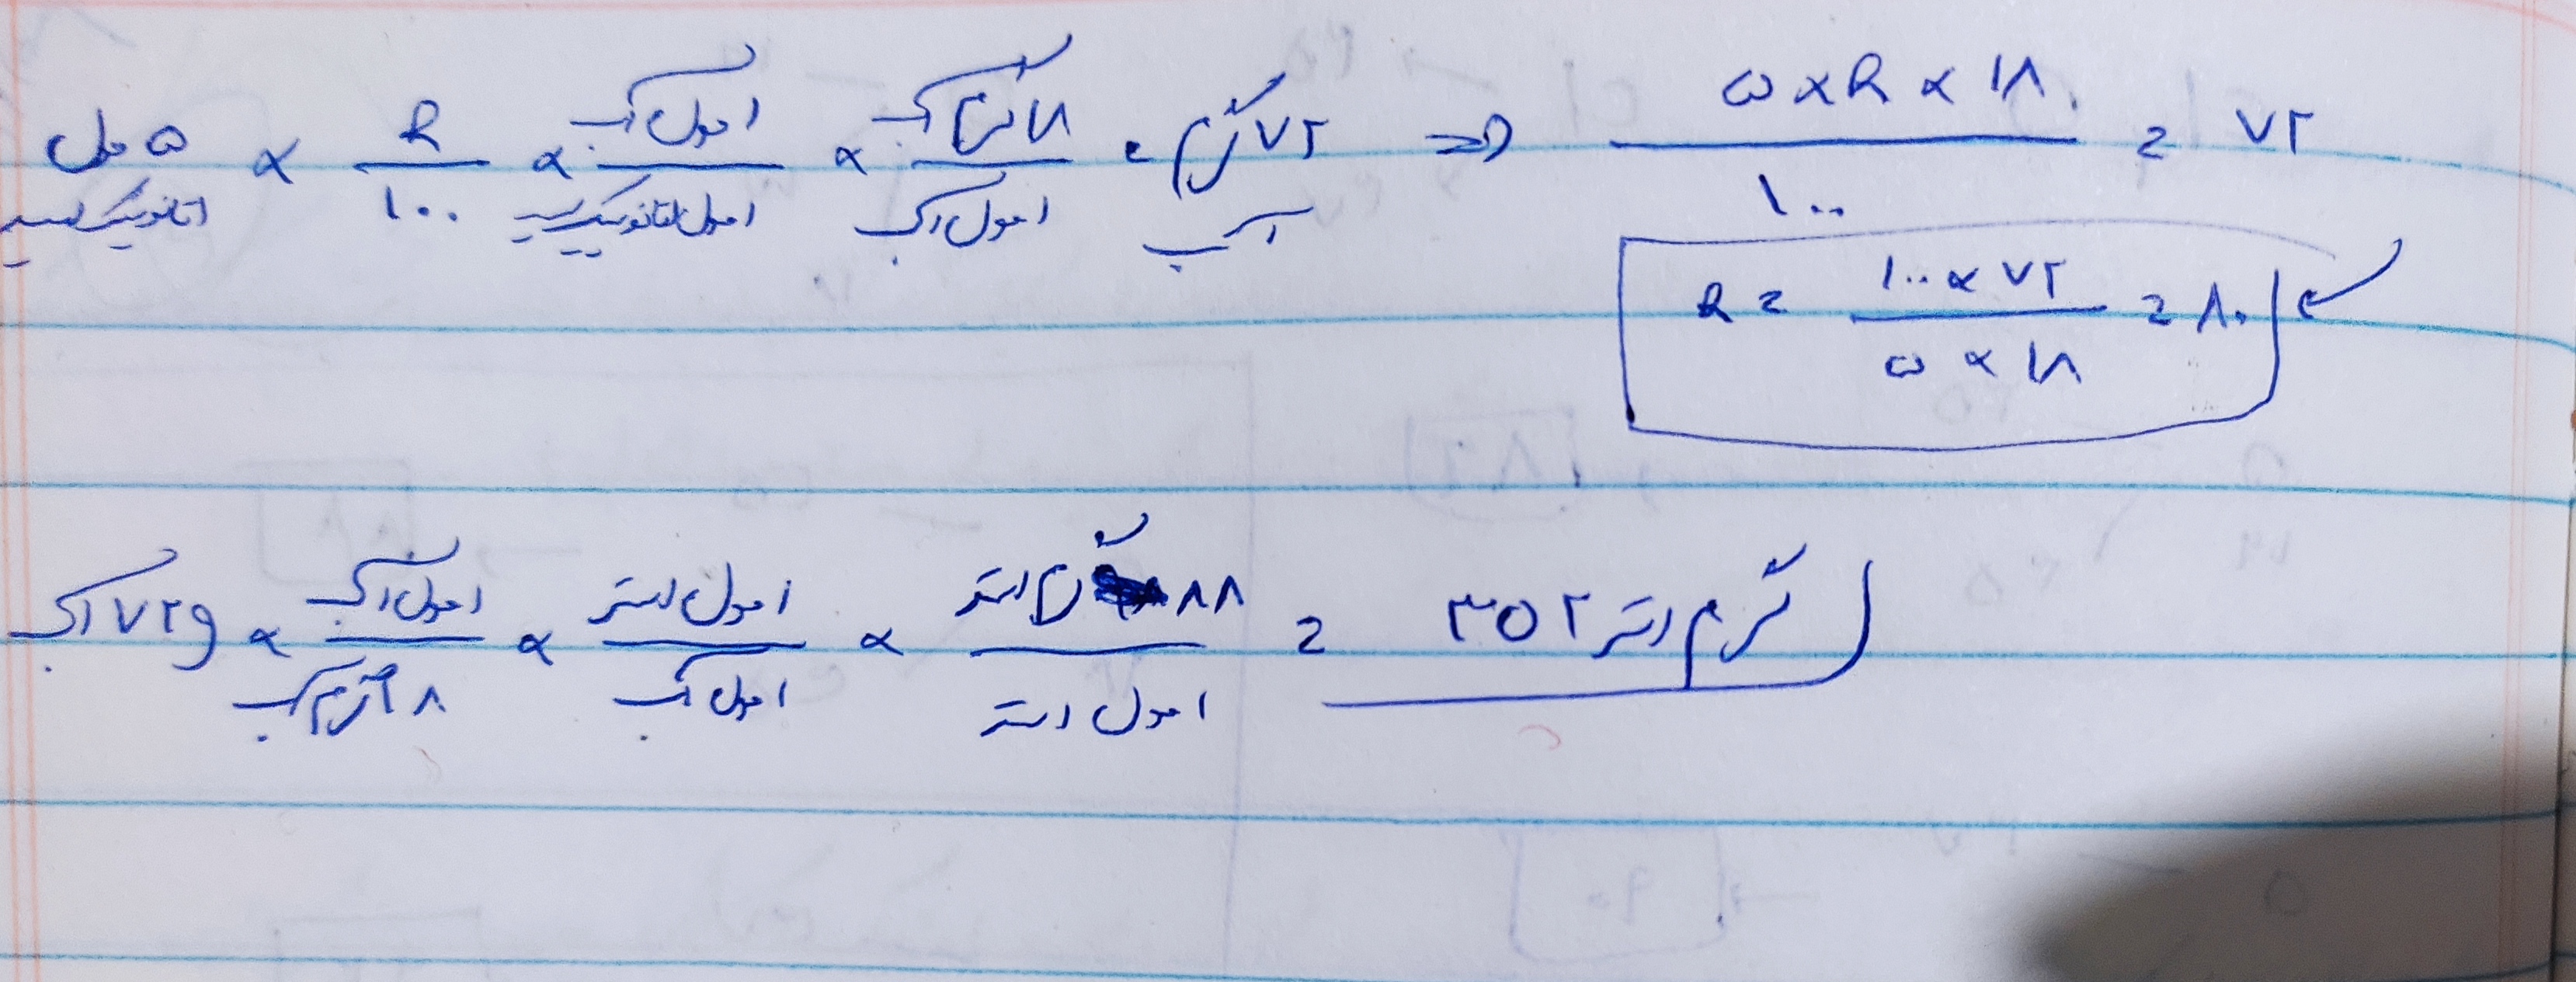 ۵ مول اتانوییک اسید × R/۱۰۰ × ۱مول آب/۱مول اتانوییک اسید × ۱۸گرم آب/۱مول آب = ۷۲گرم آب ⇒ ۵×R×۱۸/۱۰۰ = ۷۲
R = ۱۰۰×۷۲/۵×۱۸ = ۸۰
۷۲g آب × ۱مول آب/۱۸گرم آب × ۱مول استر/۱مول آب × ۸۸گرم استر/۱مول استر = ۳۵۲ گرم استر